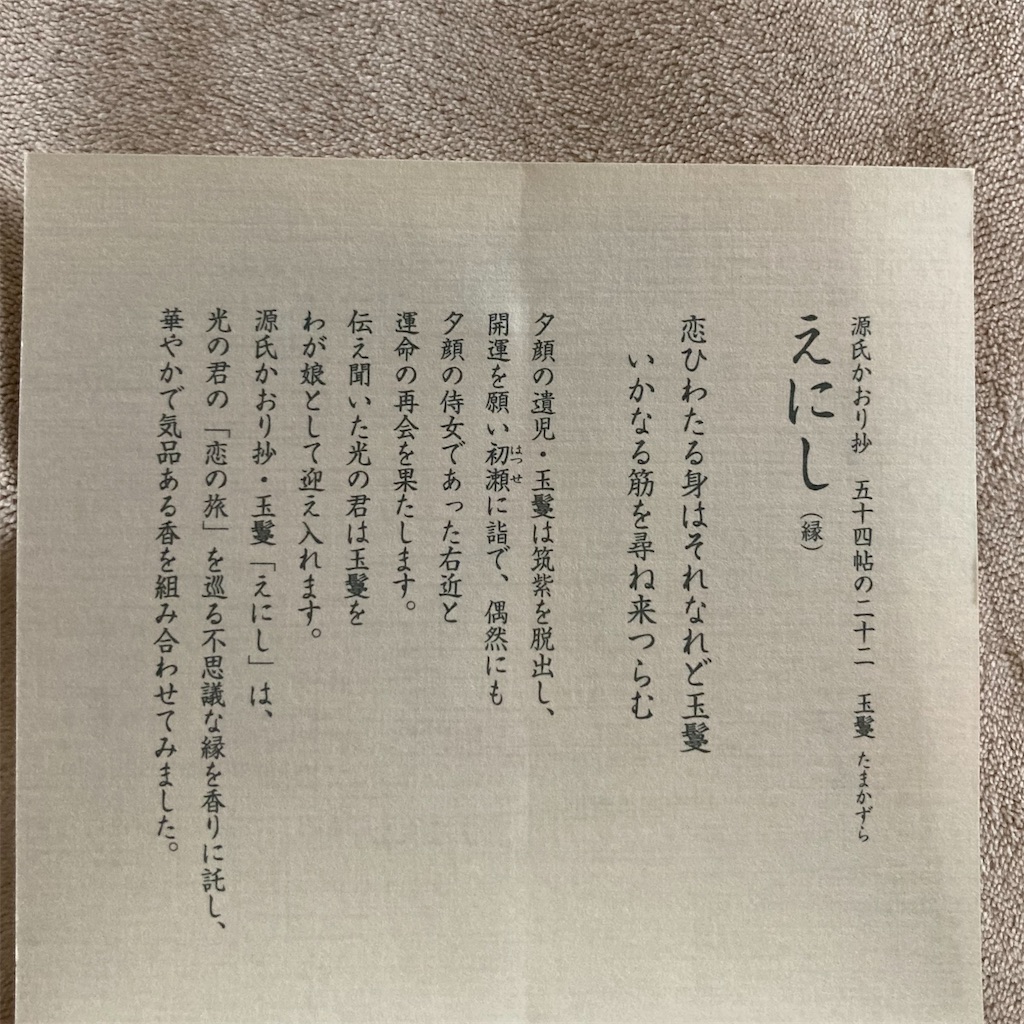 源氏かおり抄 五十四帖の二十二 玉鬘 たまかずら
えにし（縁）
恋ひわたる身はそれなれど玉鬘
いかなる筋を尋ね来つらむ
夕顔の遺児・玉鬘は筑紫を脱出し、
開運を願い初瀬に詣で、偶然にも
はつせ
夕顔の侍女であった右近と
運命の再会を果たします。
伝え聞いた光の君は玉鬘を
わが娘として迎え入れます。
源氏かおり抄・玉鬘「えにし」は、
光の君の「恋の旅」を巡る不思議な縁を香りに託し、
華やかで気品ある香を組み合わせてみました。